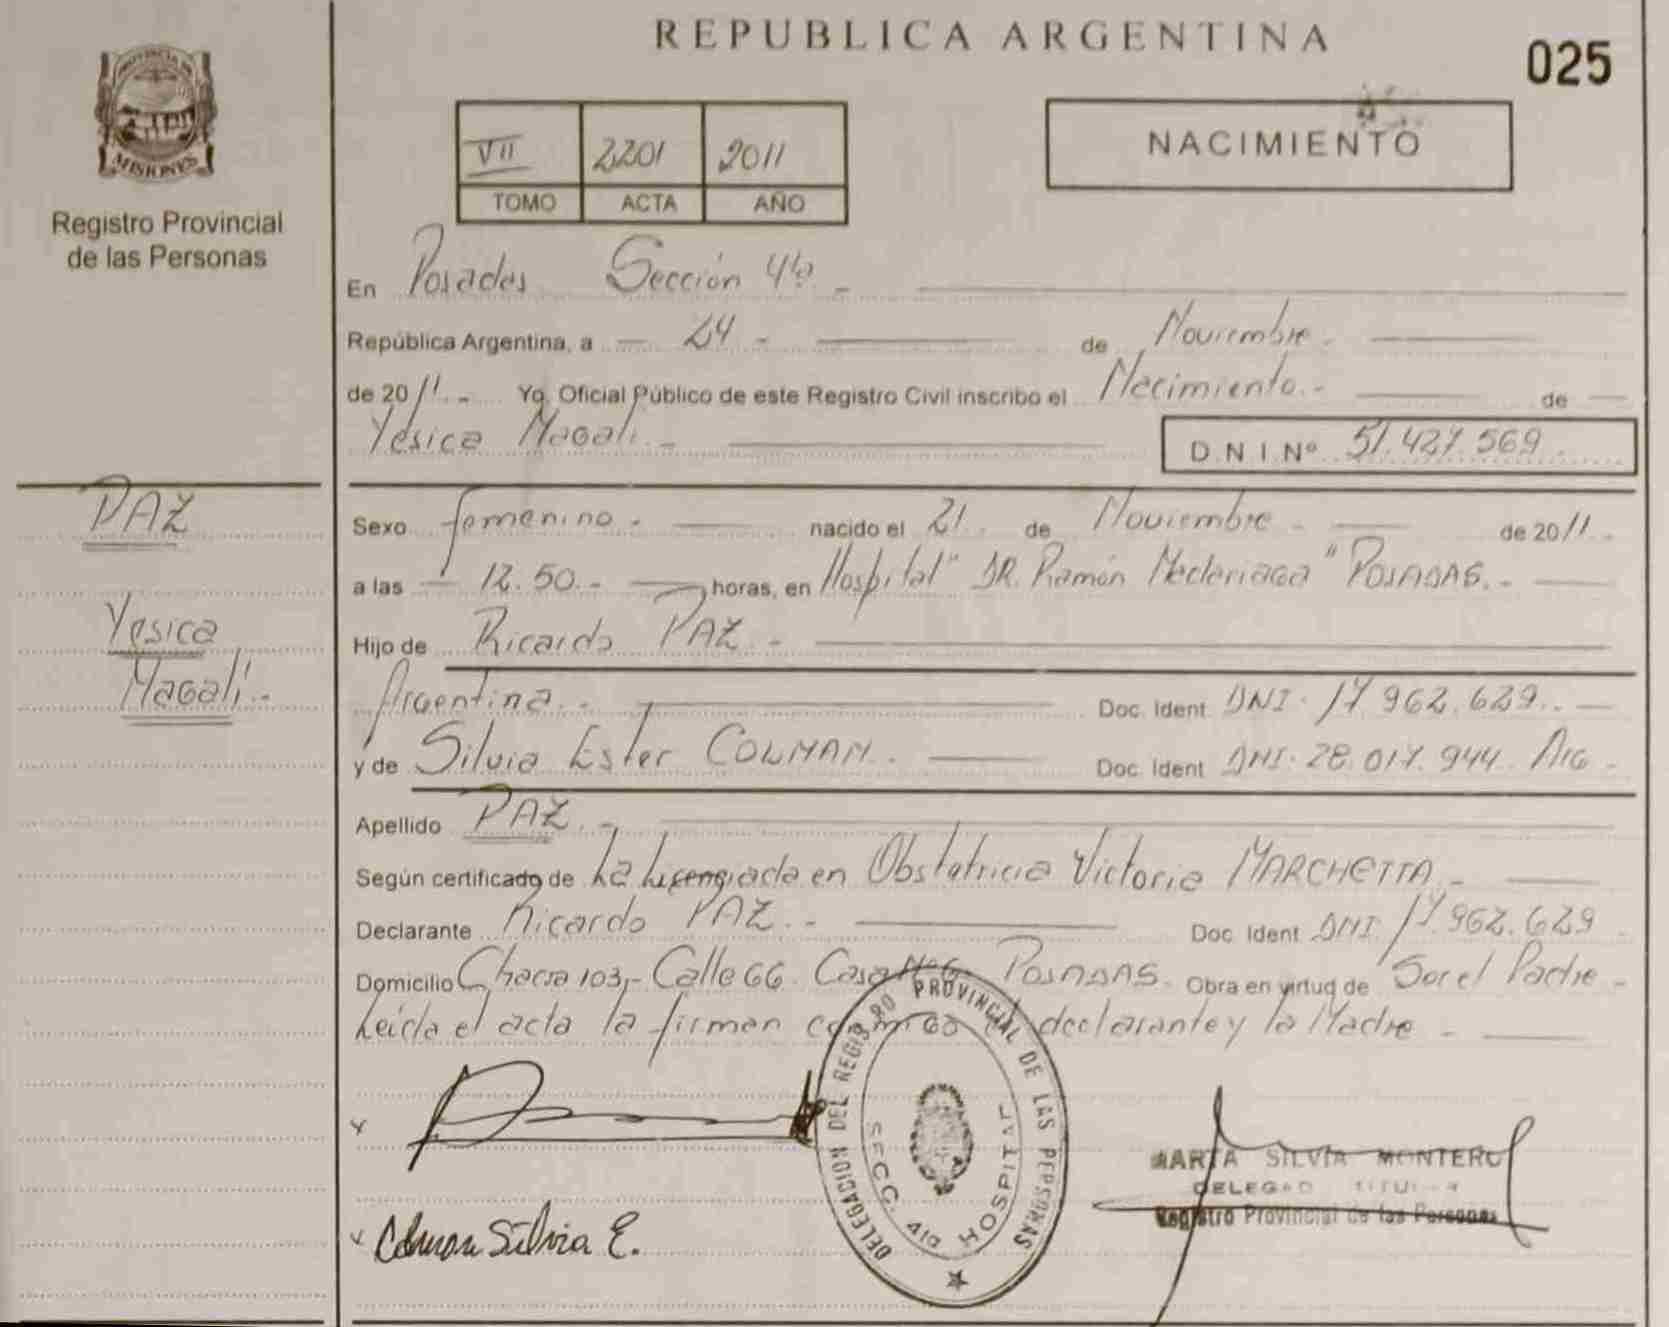 REPUBLICA ARGENTINA
025
PROVINCIA DE
MISIONES
Registro Provincial
de las Personas
VII 2201 2011
TOMO ACTA AÑO
NACIMIENTO
En Posadas Sección 4ta -
República Argentina, a - 24 - de Noviembre -
de 2011 - Yo, Oficial Público de este Registro Civil inscribo el Nacimiento - de
Yesica Magali - D.N.I. Nº 51.427.569
PAZ
Yesica
Magali -
Sexo femenino - nacido el 21 de Noviembre - de 2011 -
a las - 12.50 - horas, en Hospital "DR. Ramón Madariaga" POSADAS -
Hijo de Ricardo PAZ -
Argentina - Doc. Ident. DNI. 17.962.629 -
y de Silvia Ester COLMAN - Doc. Ident. DNI. 28.017.944 Arg -
Apellido PAZ -
Según certificado de La Licenciada en Obstetricia Victoria MARCHETTA -
Declarante Ricardo PAZ - Doc. Ident. DNI 17.962.629 -
Domicilio Chacra 103,- Calle 66 Casa POSADAS. Obra en virtud de Ser el Padre -
Leída el acta la firman conmigo el declarante y la Madre -
DELEGACION DEL REGISTRO PROVINCIAL DE LAS PERSONAS
SECC. 4ta HOSPITAL
Colman Silvia E.
MARTA SILVIA MONTERO
DELEGADO TITULAR
Registro Provincial de las Personas